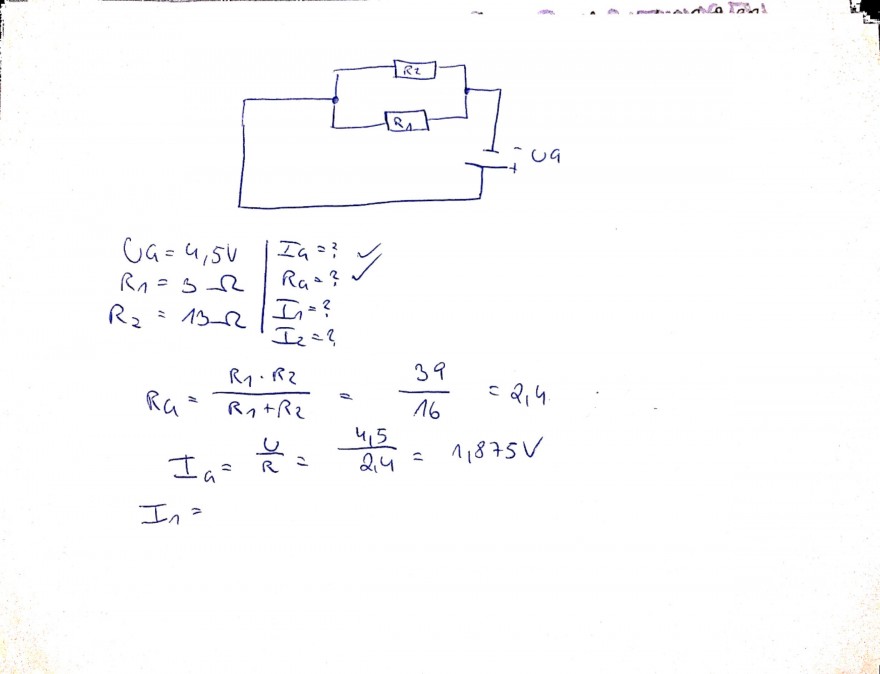 R2
R1
- UG
+
UG = 4,5V | IG = ? ✓
R1 = 3 Ω | RG = ? ✓
R2 = 13 Ω | I1 = ?
I2 = ?
RG = R1 · R2 / R1 + R2 = 39 / 16 = 2,4
IG = U / R = 4,5 / 2,4 = 1,875V
I1 =